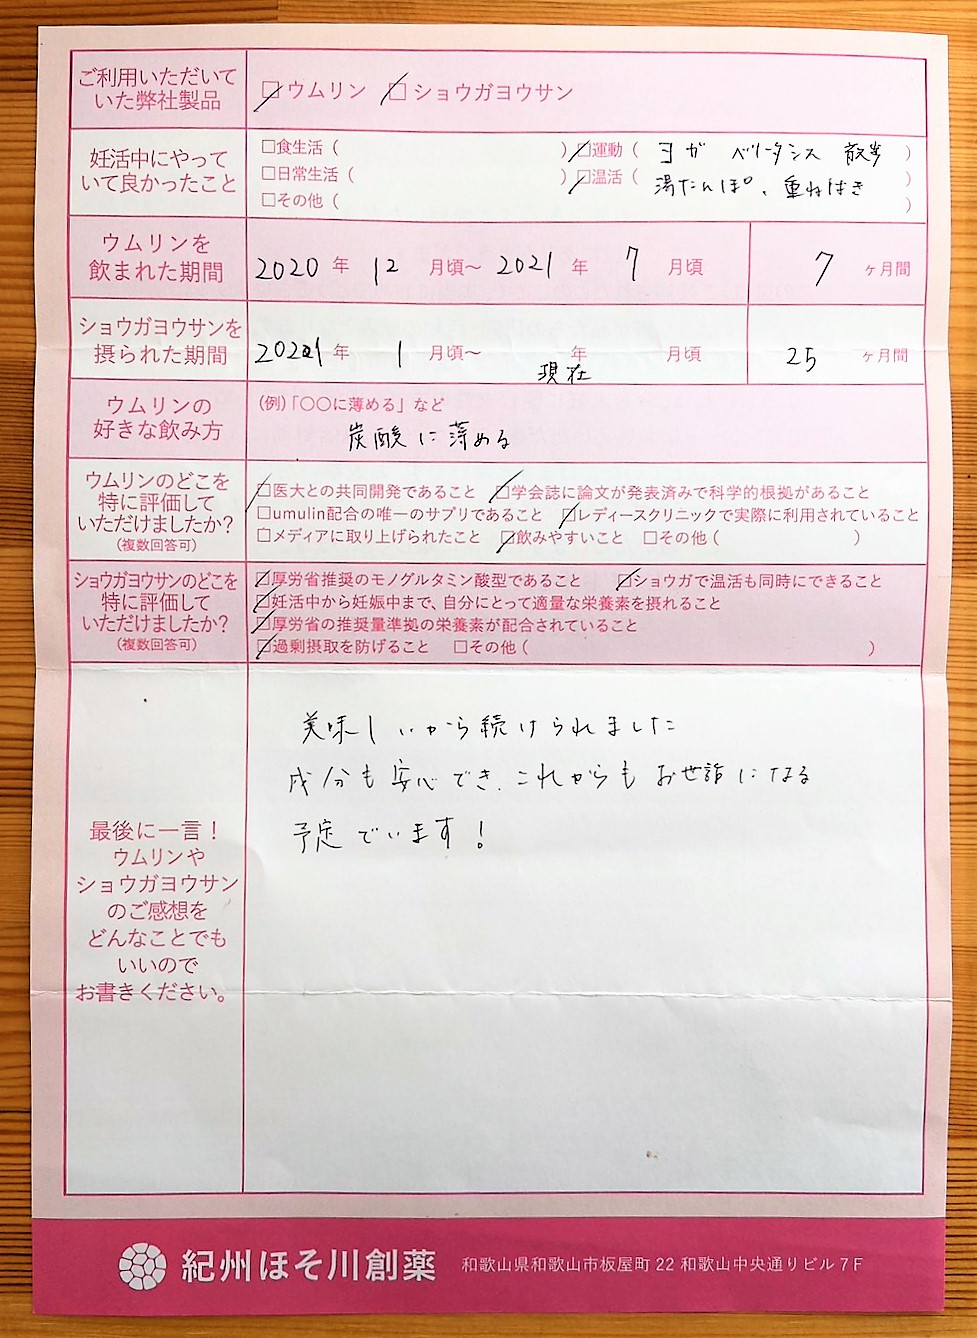 ご利用いただいて
いた弊社製品
☑ウムリン ☑ショウガヨウサン
妊活中にやって
いて良かったこと
□食生活（ ）☑運動（ ヨガ ベリーダンス 散歩 ）
□日常生活（ ）☑温活（ 湯たんぽ、重ねばき ）
□その他（ ）
ウムリンを
飲まれた期間
2020年 12月頃〜2021年 7月頃 7ヶ月間
ショウガヨウサンを
摂られた期間
2021年 1月頃〜 年 月頃 25ヶ月間
現在
ウムリンの
好きな飲み方
（例）「〇〇に薄める」など
炭酸に薄める
ウムリンのどこを
特に評価して
いただけましたか？
（複数回答可）
☑医大との共同開発であること ☑学会誌に論文が発表済みで科学的根拠があること
□umulin配合の唯一のサプリであること ☑レディースクリニックで実際に利用されていること
□メディアに取り上げられたこと ☑飲みやすいこと □その他（ ）
ショウガヨウサンのどこを
特に評価して
いただけましたか？
（複数回答可）
☑厚労省推奨のモノグルタミン酸型であること ☑ショウガで温活も同時にできること
☑妊活中から妊娠中まで、自分にとって適量な栄養素を摂れること
☑厚労省の推奨量準拠の栄養素が配合されていること
☑過剰摂取を防げること □その他（ ）
最後に一言！
ウムリンや
ショウガヨウサン
のご感想を
どんなことでも
いいので
お書きください。
美味しいから続けられました
成分も安心でき、これからもお世話になる
予定でいます！
紀州ほそ川創薬 和歌山県和歌山市板屋町22 和歌山中央通りビル7F